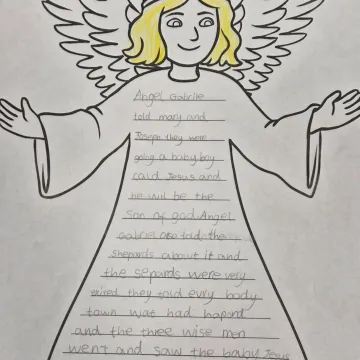 Angel Gabrile
told mary and
Joseph they were
going a baby boy
cald Jesus and
he will be the
son of god Angel
Gabriel olso told the
sheperds about it and
the separds were very
exired they told evry body
town wat had hapond
and the three wise men
went and saw the baby Jesus